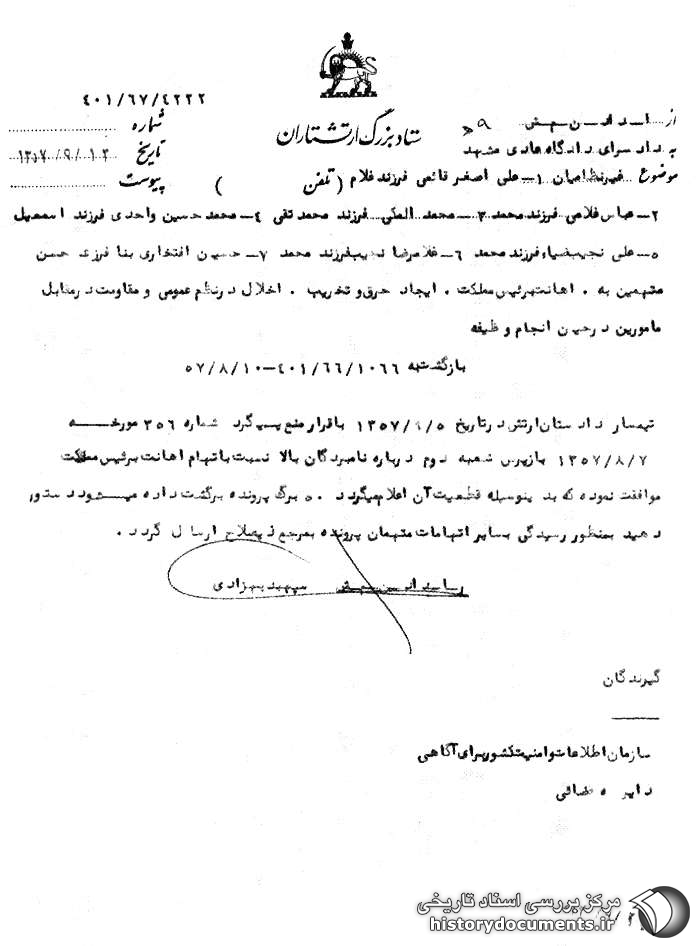 ۴۰۱/۶۷/۴۲۲۲
ستاد بزرگ ارتشتاران
شماره
تاریخ ۱۳۵۷/۹/۱۲
پیوست
از
به دادسرای دادگاه عادی مشهد
موضوع غیرنظامیان ۱ــ علی اصغر قائمی فرزند غلام (تلفن )
۲ــ عباس غلامی فرزند محمد ۳ــ محمد فرزند محمد تقی ۴ــ محمد حسین واحدی فرزند اسمعیل
۵ــ علی نجیب ضیاء فرزند محمد ۶ــ غلامرضا نجیب فرزند محمد ۷ــ حسین افتخاری بنا فرزند حسن
متهمین به . اهانت برئیس مملکت . ایجاد حرق و تخریب . اخلال در نظم عمومی و مقاومت در مقابل
مامورین در حین انجام وظیفه
بازگشت به ۴۰۱/۶۶/۱۰۶۶ــ۵۷/۸/۱۰
تیمسار دادستان ارتش در تاریخ ۱۳۵۷/۹/۵ با قرار منع پیگرد شماره ۳۵۶ مورخه
۱۳۵۷/۸/۷ بازپرس شعبه دوم درباره نامبردگان بالا نسبت باتهام اهانت برئیس مملکت
موافقت نموده که بدینوسیله قطعیت آن اعلام میگردد . ۵۰ برگ پرونده برگشت داده میشود دستور
دهید بمنظور رسیدگی بسایر اتهامات متهمان پرونده بمرجع ذیصلاح ارسال گردد .
سپهبد بهزادی
گیرندگان
سازمان اطلاعات و امنیت کشور برای آگاهی
دایره قضائی
مرکز بررسی اسناد تاریخی
historydocuments.ir